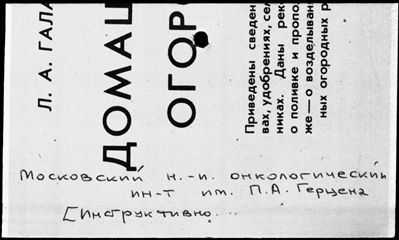 Л. А. ГАЛА
ДОМАШ
ОГОРО
Приведены сведен
вах, удобрениях, сем
никах. Даны реко
о поливке и пропо
же — о возделыван
ных огородных р
Московский н.-и. онкологический
ин-т им. П.А. Герцена
[Инструктивно...